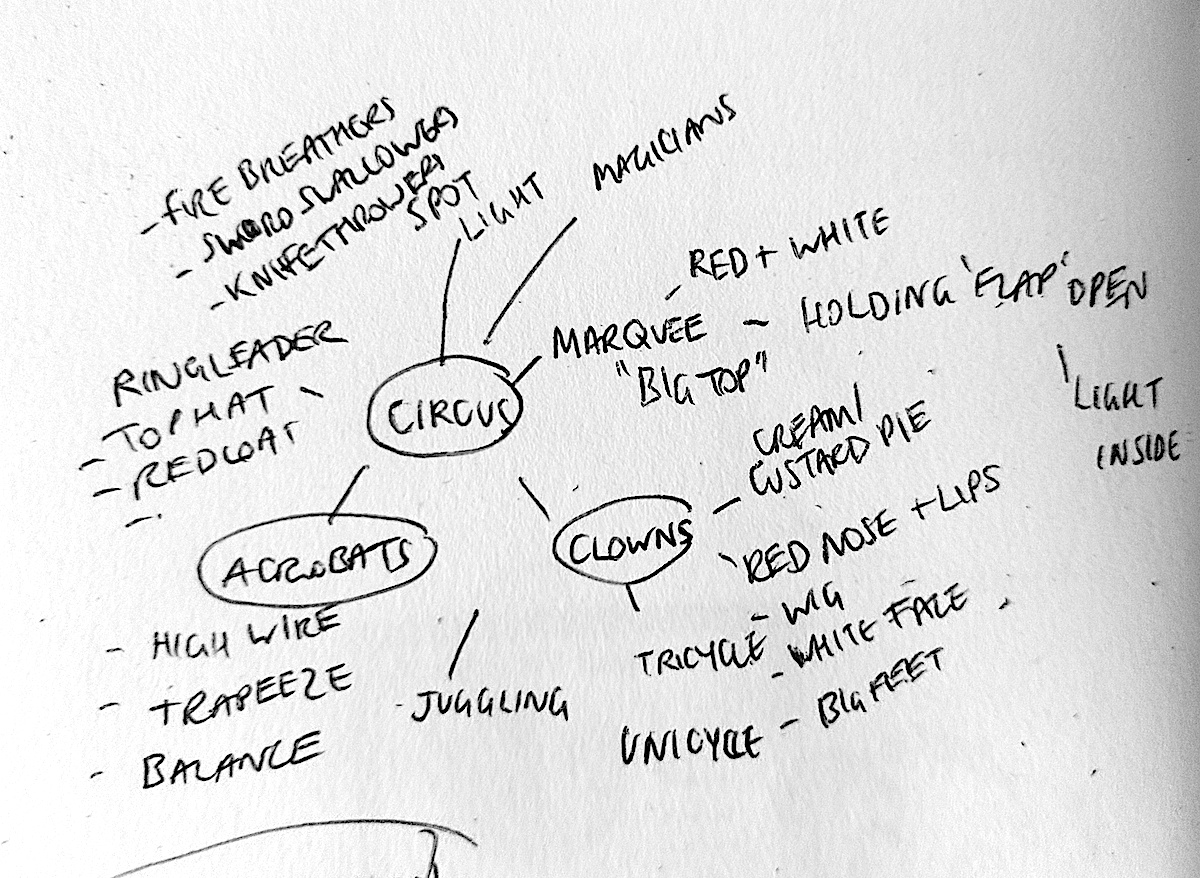 - FIRE BREATHERS
- SWORD SWALLOWERS
- KNIFETHROWERS
SPOT
LIGHT
MAGICIANS
- RED + WHITE
MARQUEE - HOLDING 'FLAP' OPEN
"BIG TOP"
LIGHT
INSIDE
RINGLEADER
- TOP HAT
- RED COAT
-
CIRCUS
CREAM/
CUSTARD PIE
CLOWNS
RED NOSE + LIPS
- WIG
- WHITE FACE
- BIG FEET
TRICYCLE
UNICYCLE
ACROBATS
- HIGH WIRE
- TRAPEEZE
- BALANCE
- JUGGLING